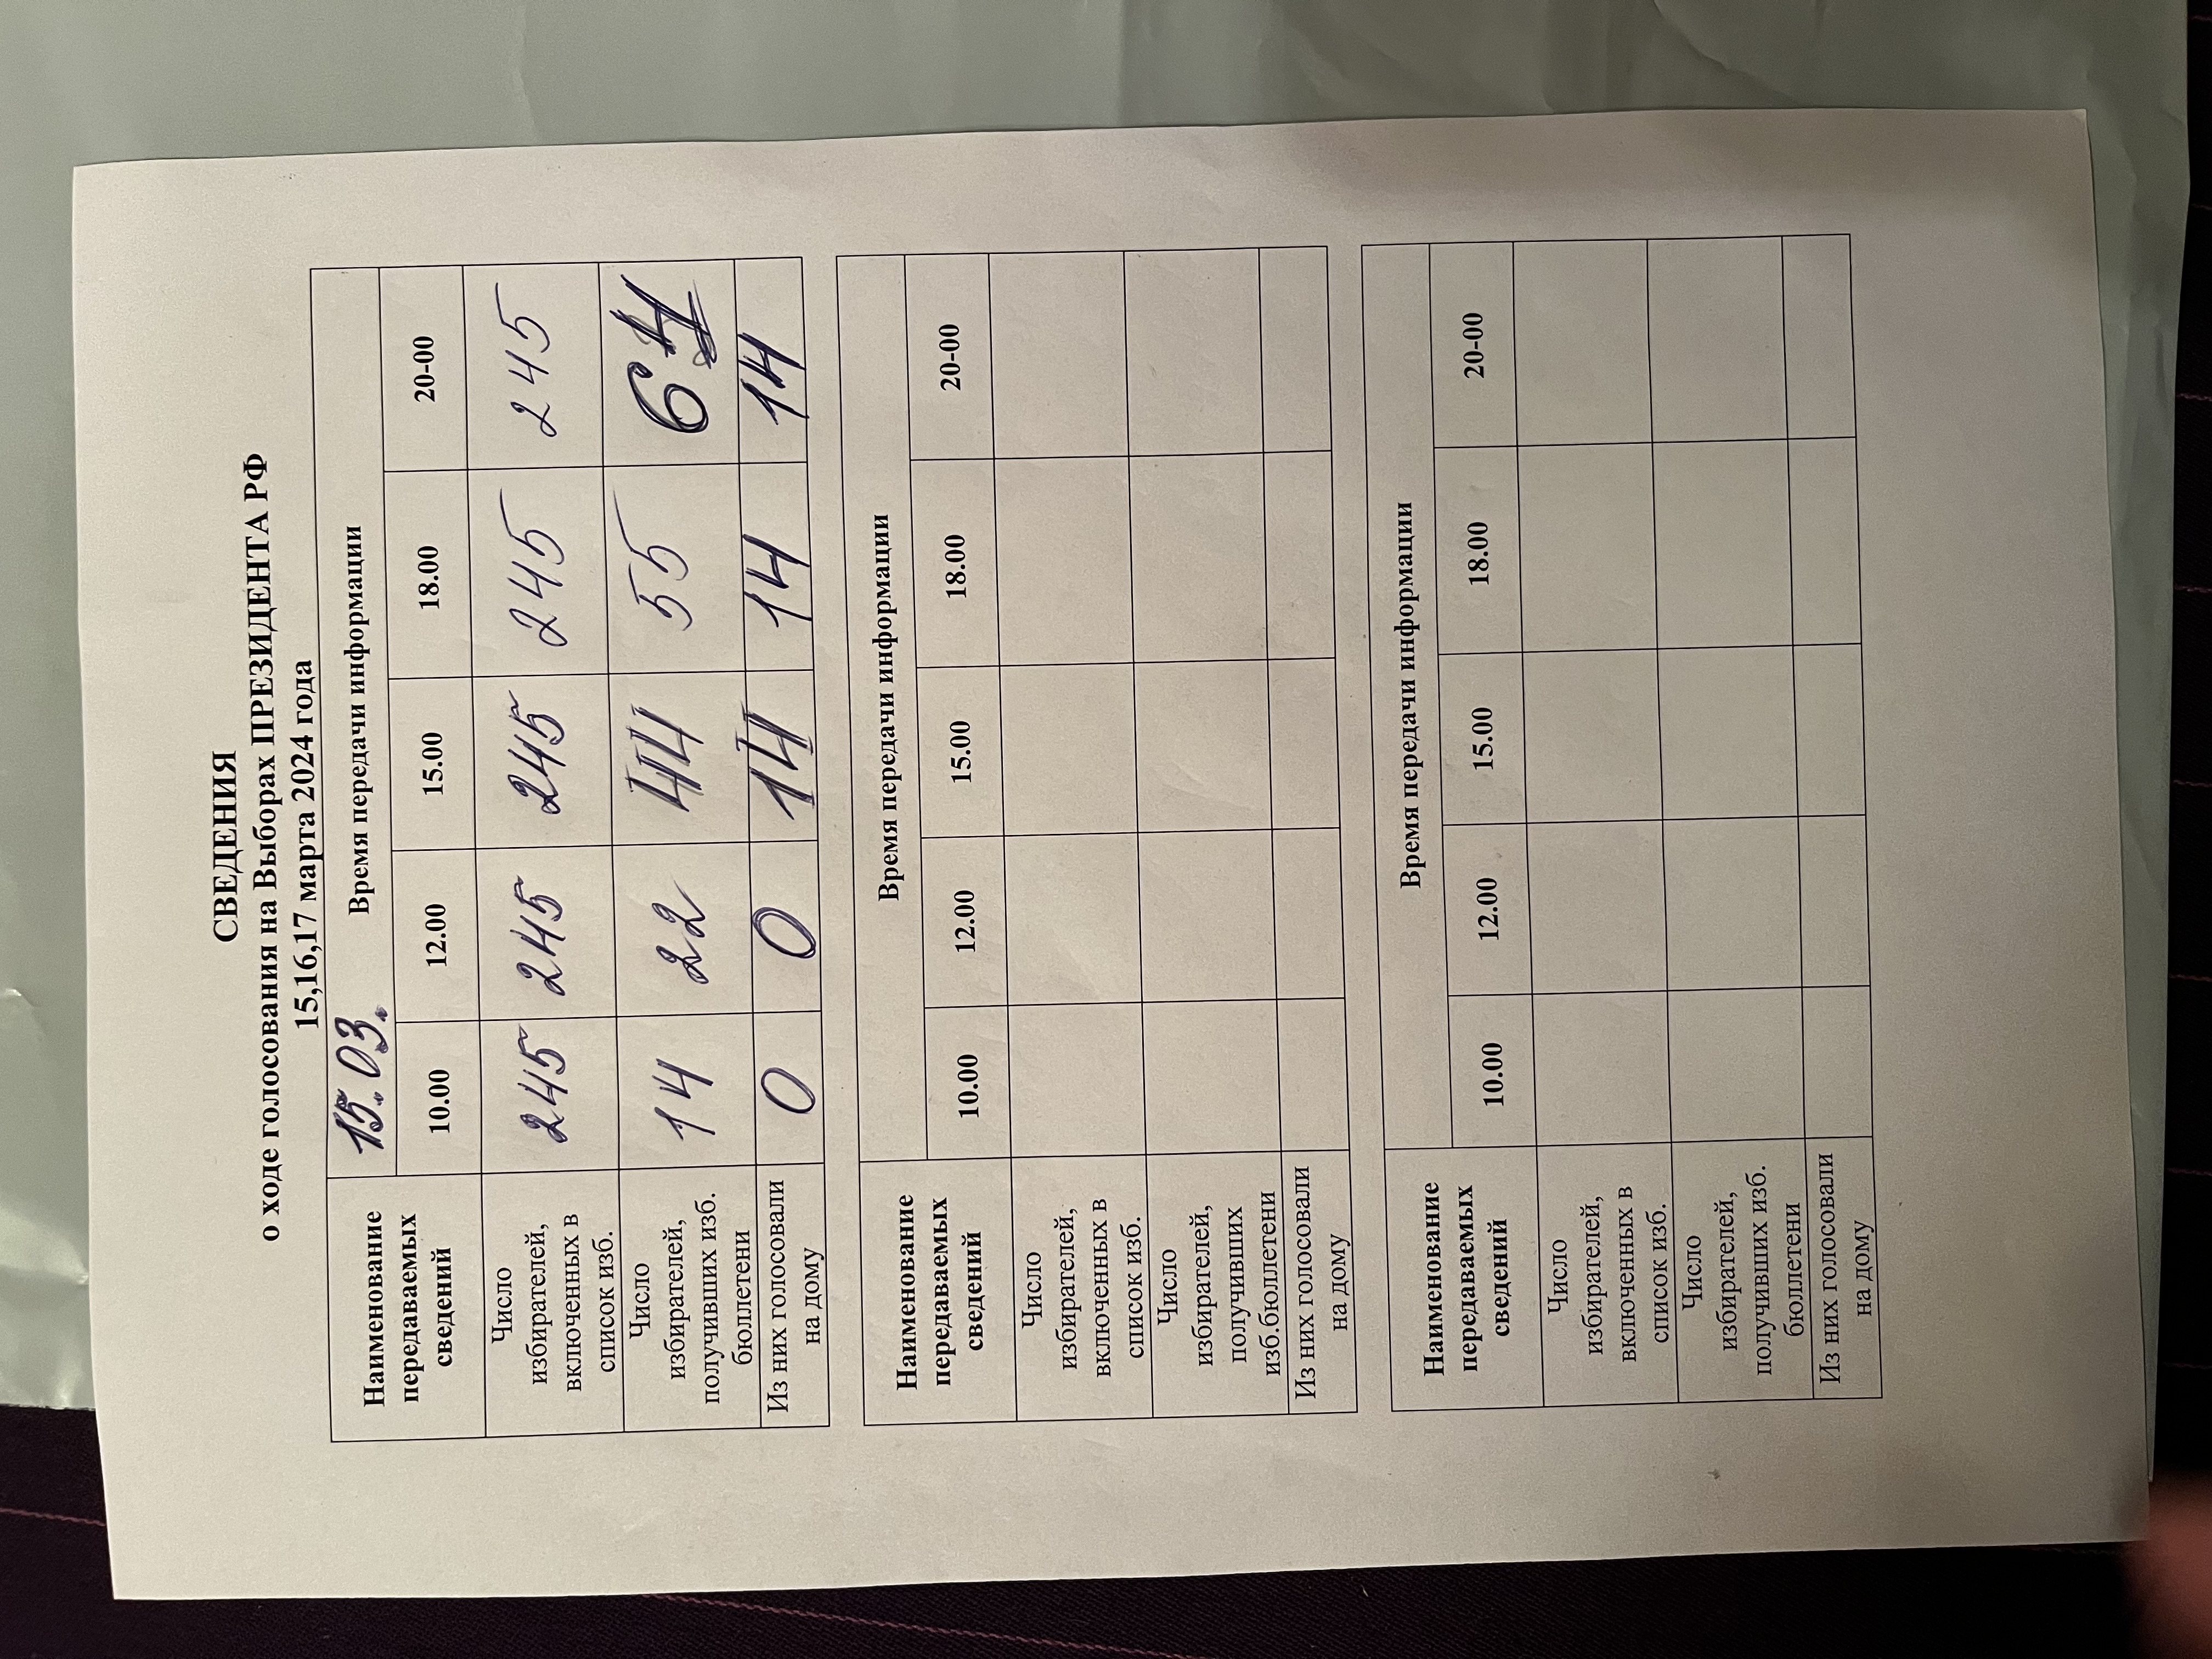 СВЕДЕНИЯ
о ходе голосования на Выборах ПРЕЗИДЕНТА РФ
15,16,17 марта 2024 года
Наименование передаваемых сведений 15.03. Время передачи информации
10.00 12.00 15.00 18.00 20-00
Число избирателей, включенных в список изб. 245 245 245 245 245
Число избирателей, получивших изб. бюллетени 14 22 44 55 64
Из них голосовали на дому 0 0 14 14 14
Наименование передаваемых сведений Время передачи информации
10.00 12.00 15.00 18.00 20-00
Число избирателей, включенных в список изб.
Число избирателей, получивших изб.бюллетени
Из них голосовали на дому
Наименование передаваемых сведений Время передачи информации
10.00 12.00 15.00 18.00 20-00
Число избирателей, включенных в список изб.
Число избирателей, получивших изб. бюллетени
Из них голосовали на дому